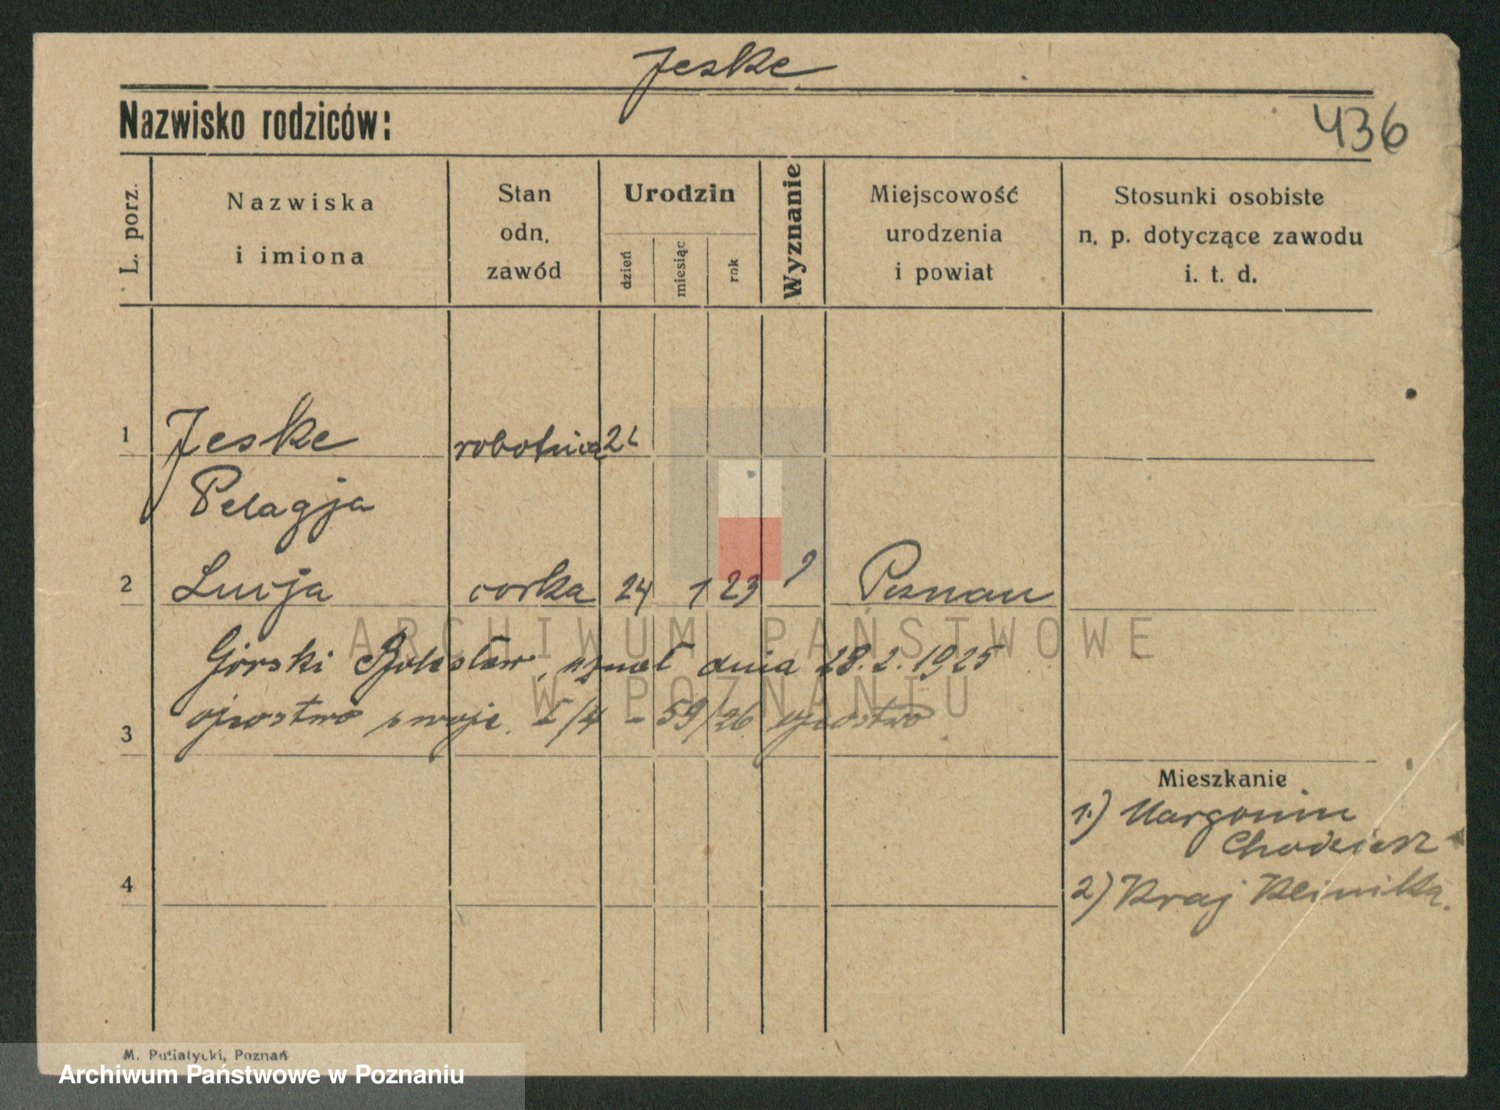 Jeske
Nazwisko rodziców:
436
L. porz.
Nazwiska
i imiona
Stan
odn.
zawód
Urodzin
dzień
miesiąc
rok
Wyznanie
Miejscowość
urodzenia
i powiat
Stosunki osobiste
n. p. dotyczące zawodu
i. t. d.
1 Jeske robotnica
Pelagja
2 Lucja corka 24 1 23 Poznan
Górski Bolesław, uznał dnia 28.2.1925
ojcostwo swoje. I/4 – 59/26 ojcostwo
3
Mieszkanie
1.) Margonin
Chodziesz
4
2) Kraj Klinika.
M. Putiatycki, Poznań
ARCHIWUM PAŃSTWOWE
W POZNANIU
Archiwum Państwowe w Poznaniu